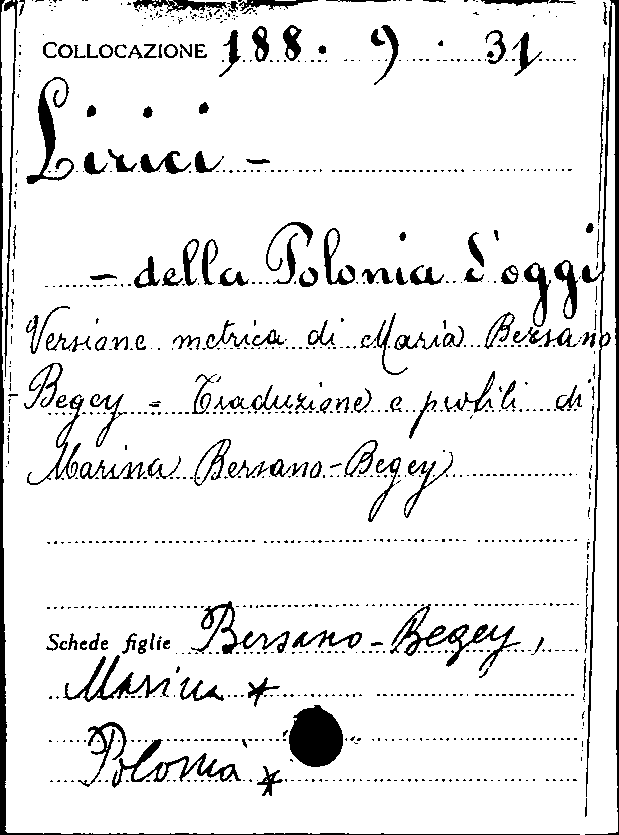 COLLOCAZIONE 188. 9. 31
Lirici -
- della Polonia d'oggi
Versione metrica di Maria Bersano
Begey - Traduzione e profili di
Marina Bersano-Begey
Schede figlie Bersano-Begey,
Marina *
Polonia *